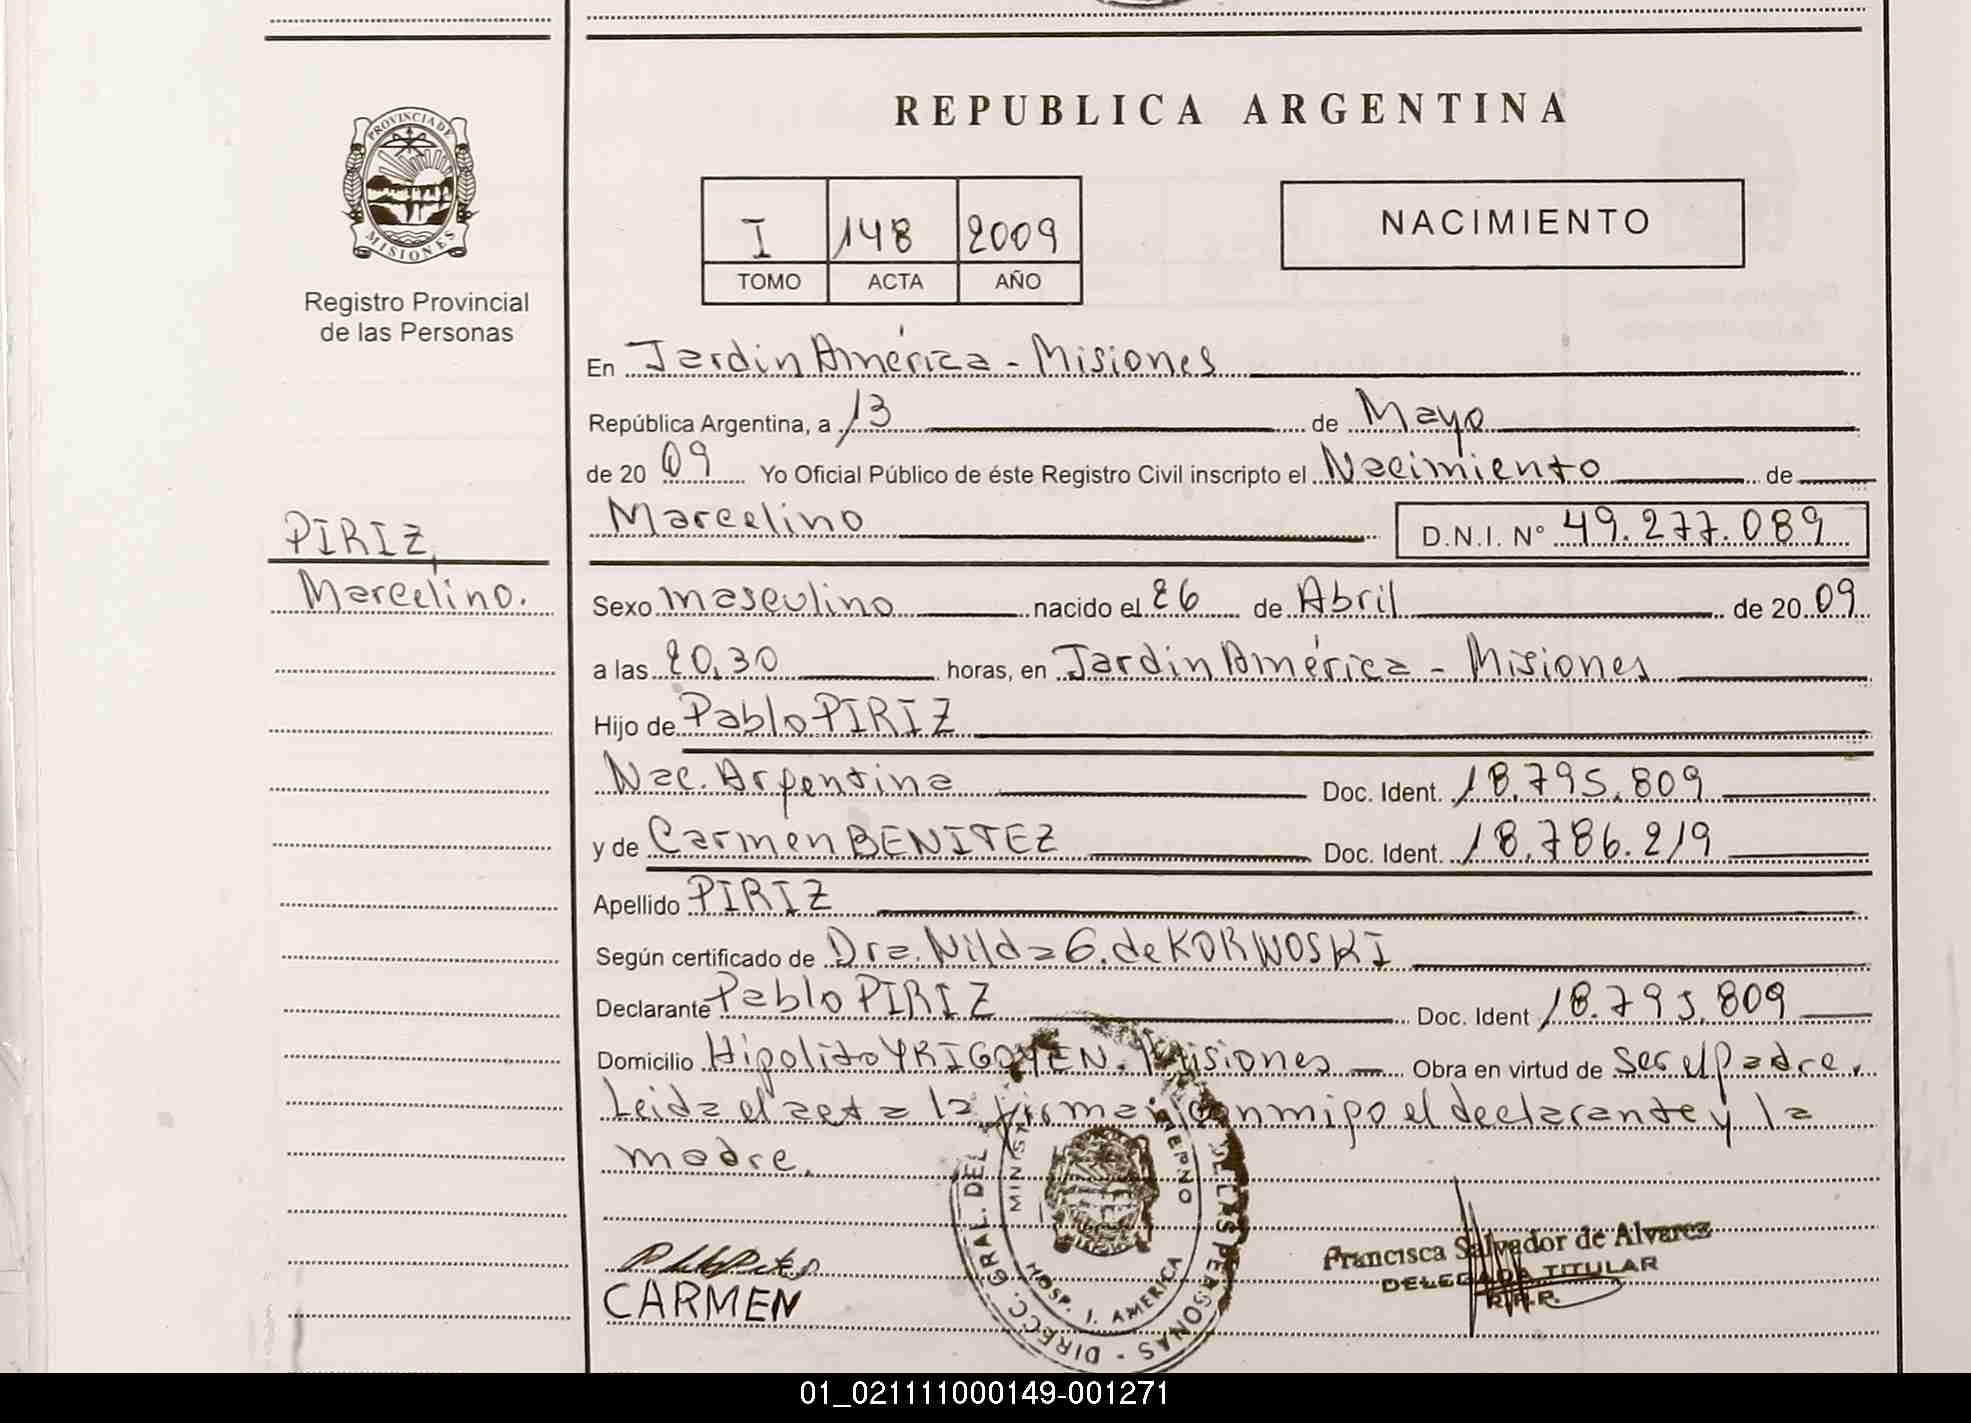 PROVINCIA DE
MISIONES
Registro Provincial
de las Personas
PIRIZ,
Marcelino.
REPUBLICA ARGENTINA
I 148 2009
TOMO ACTA AÑO
NACIMIENTO
En Jardin América - Misiones
República Argentina, a 13 de Mayo
de 20 09 Yo Oficial Público de éste Registro Civil inscripto el Nacimiento de
Marcelino D.N.I. N° 49.277.089
Sexo masculino nacido el 26 de Abril de 20 09
a las 20,30 horas, en Jardin América - Misiones
Hijo de Pablo PIRIZ
Nac. Argentina Doc. Ident. 18.795.809
y de Carmen BENITEZ Doc. Ident. 18.786.219
Apellido PIRIZ
Según certificado de Dra. Nilda G. de KORWOSKI
Declarante Pablo PIRIZ Doc. Ident 18.795.809
Domicilio Hipolito YRIGOYEN. Misiones - Obra en virtud de ser el padre.
Leida el acta la firman conmigo el declarante y la
madre.
CARMEN
DIRECC. GRAL. DEL DE LAS PERSONAS
HOSP. J. AMERICA
Francisca Salvador de Alvarez
DELEGADA TITULAR
R.P.P.
01_021111000149-001271